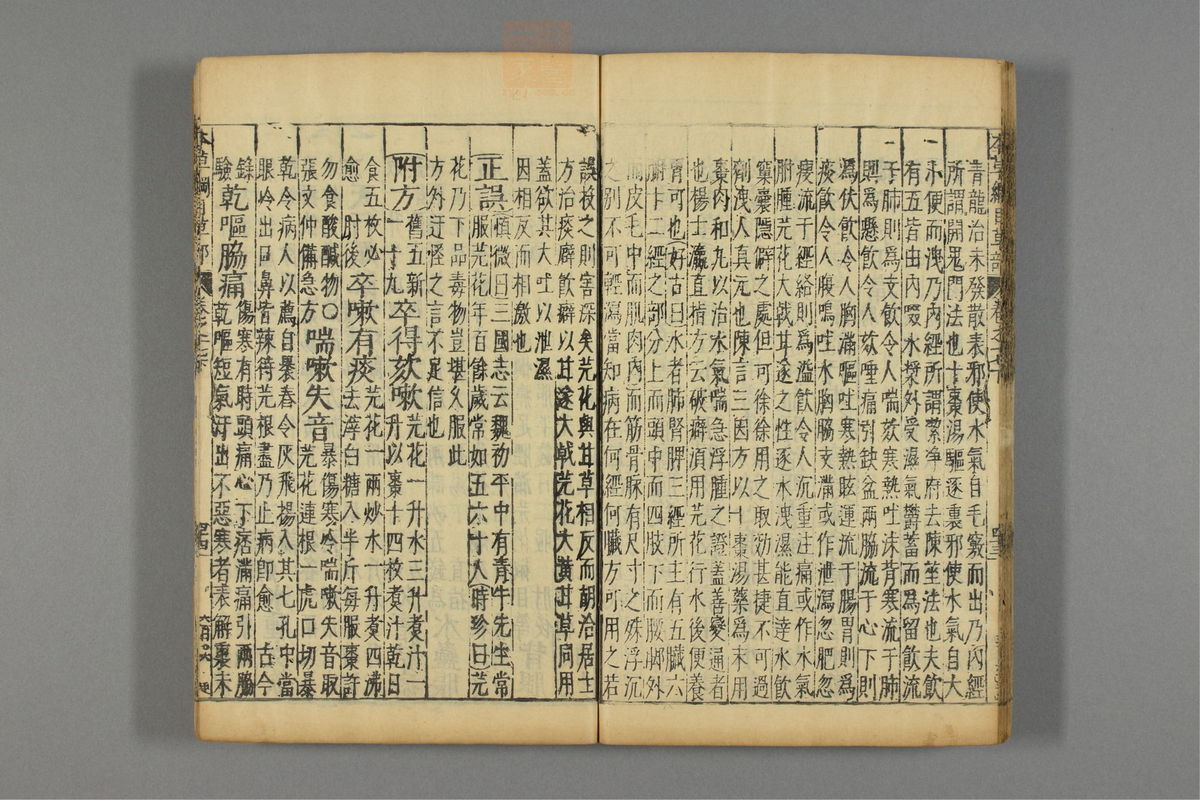 本草綱目草部 卷之十七下
青龍治未發散表邪使水氣自毛竅而出乃內經
所謂開鬼門法也十棗湯驅逐裏邪使水氣自大
小便而洩乃內經所謂潔淨府去陳莝法也夫飲
有五皆由內啜水漿外受濕氣鬱蓄而爲留飲流
于肺則爲支飲令人喘欬寒熱吐沫背寒流于肺
則爲懸飲令人欬唾痛引缺盆兩脇流于心下則
爲伏飲令人胸滿嘔吐寒熱眩運流于腸胃則爲
痰飲令人腹鳴吐水胸脇支滿或作泄瀉忽肥忽
瘦流于經絡則爲溢飲令人沉重注痛或作水氣
胕腫芫花大戟甘遂之性逐水洩濕能直達水飲
窠囊隱僻之處但可徐徐用之取効甚捷不可過
劑洩人真元也陳言三因方以十棗湯藥爲末用
棗肉和丸以治水氣喘急浮腫之證蓋善變通者
也楊士瀛直指方云破癖須用芫花行水後便養
胃可也(好古曰)水者肺腎脾三經所主有五臟六
腑十二經之部分上而頭中而四肢下而腰脚外
而皮毛中而肌肉內而筋骨脉有尺寸之殊浮沉
之別不可輕瀉當知病在何經何臟方可用之若
誤投之則害深矣芫花與甘草相反而胡治居士
方治痰癖飲癖以甘遂大戟芫花大黃甘草同用
蓋欲其大吐以泄濕
因相反而相激也
正誤(慎微曰)三國志云魏初平中有青牛先生常
服芫花年百餘歲常如五六十人(時珍曰)芫
花乃下品毒物豈堪久服此
方外迂怪之言不足信也
附方舊五新十九卒得欬嗽芫花一升水三升煮汁一
升以棗十四枚煮汁乾日
食五枚必愈肘後卒嗽有痰芫花一兩炒水一升煮四沸
去滓白糖入半斤每服棗許
勿食酸鹹物張文仲備急方○喘嗽失音暴傷寒冷喘嗽失音取
芫花連根一虎口切暴
乾令病人以薦自裹舂令灰飛揚入其七孔中當
眼淚出口鼻皆辣待芫根盡乃止病卽愈古今
錄驗乾嘔脇痛傷寒有時頭痛心下痞滿痛引兩脇
乾嘔短氣汗出不惡寒者表解裏未
本草綱目草部 卷之十七下
四十四